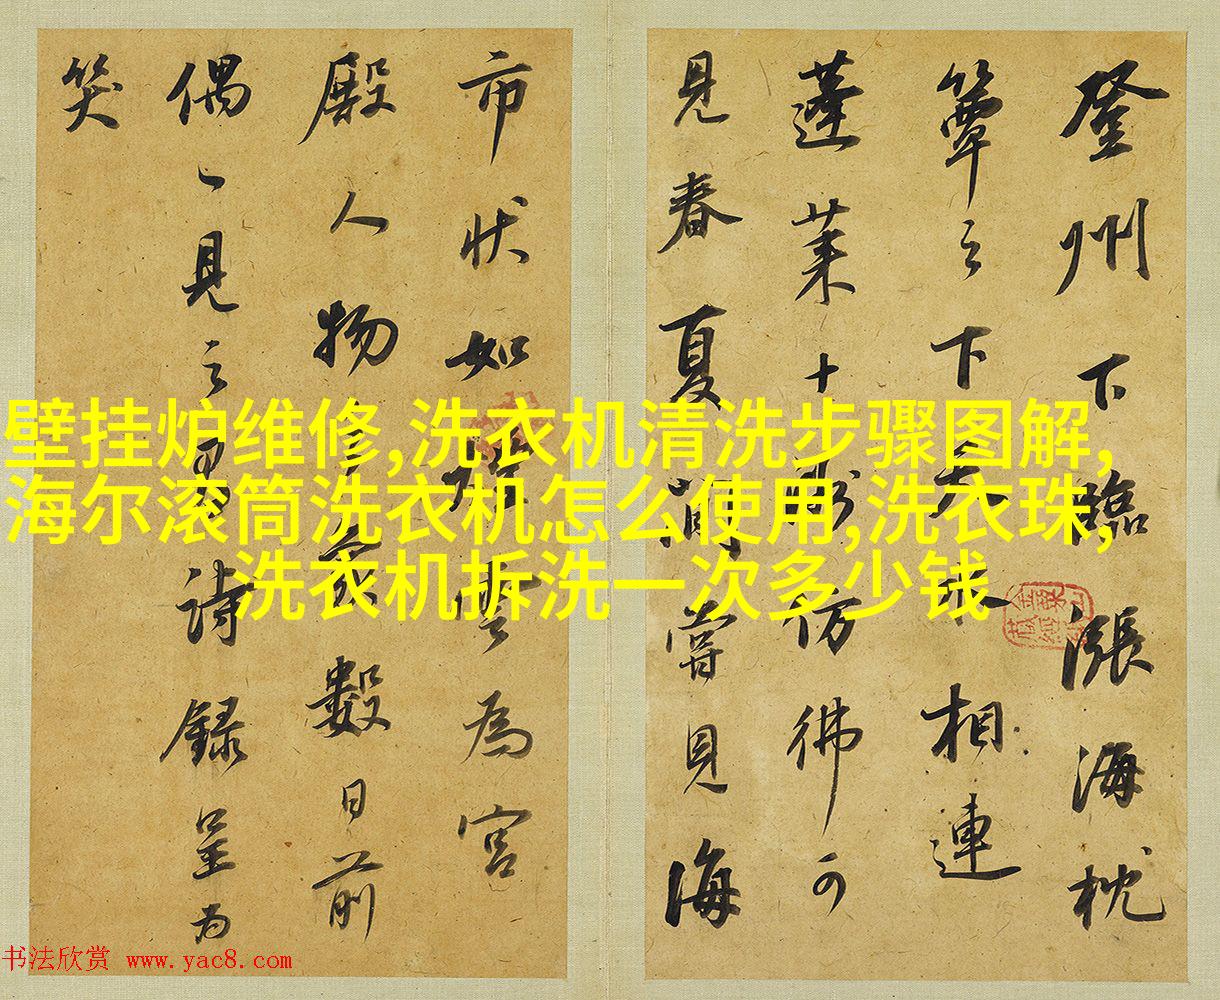 登州下臨漲海枕
簟之下天水相連
蓬莱十仿彿可
見春夏間嘗見海
市狀如煙雲為宮
殿人物數日前
偶一見之詩錄呈為
笑
壁挂炉维修,洗衣机清洗步骤图解,
海尔滚筒洗衣机怎么使用,洗衣珠,
洗衣机拆洗一次多少钱
书法欣赏 www.yac8.com